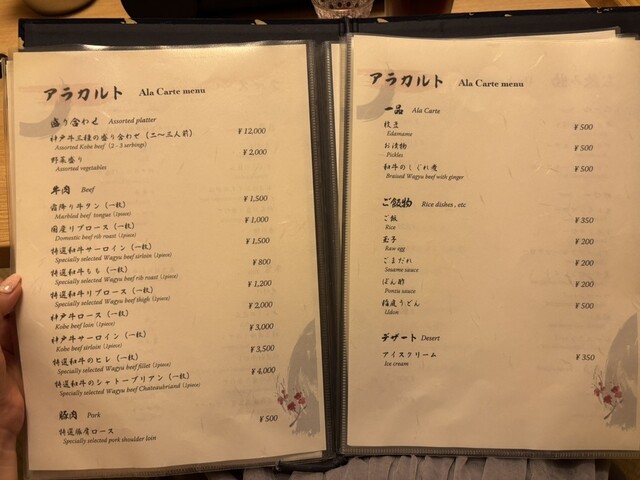 アラカルト Ala Carte menu
盛り合わせ Assorted platter
神戸牛三種の盛り合わせ（二〜三人前） ¥12,000
Assorted Kobe beef (2 - 3 serbings)
野菜盛り ¥2,000
Assorted vegetables
牛肉 Beef
霜降り牛タン（一枚） ¥1,500
Marbled beef tongue (1piece)
国産リブロース（一枚） ¥1,000
Domestic beef rib roast (1piece)
特選和牛サーロイン（一枚） ¥1,500
Specially selected Wagyu beef sirloin (1piece)
特選和牛もも（一枚） ¥800
Specially selected Wagyu beef rib roast (1piece)
特選和牛リブロース（一枚） ¥1,200
Specially selected Wagyu beef thigh (1piece)
神戸牛ロース（一枚） ¥2,000
Kobe beef loin (1piece)
神戸牛サーロイン（一枚） ¥3,000
Kobe beef sirloin (1piece)
特選和牛のヒレ（一枚） ¥3,500
Specially selected Wagyu beef fillet (1piece)
特選和牛のシャトーブリアン（一枚） ¥4,000
Specially selected Wagyu beef Chateaubriand (1piece)
豚肉 Pork
特選豚肩ロース ¥500
Specially selected pork shoulder loin
アラカルト Ala Carte menu
一品 Ala Carte
枝豆 ¥500
Edamame
お漬物 ¥500
Pickles
和牛のしぐれ煮 ¥500
Braised Wagyu beef with ginger
ご飯物 Rice dishes , etc
ご飯 ¥350
Rice
玉子 ¥200
Raw egg
ごまだれ ¥200
Sesame sauce
ぽん酢 ¥200
Ponzu sauce
稲庭うどん ¥500
Udon
デザート Desert
アイスクリーム ¥350
Ice cream